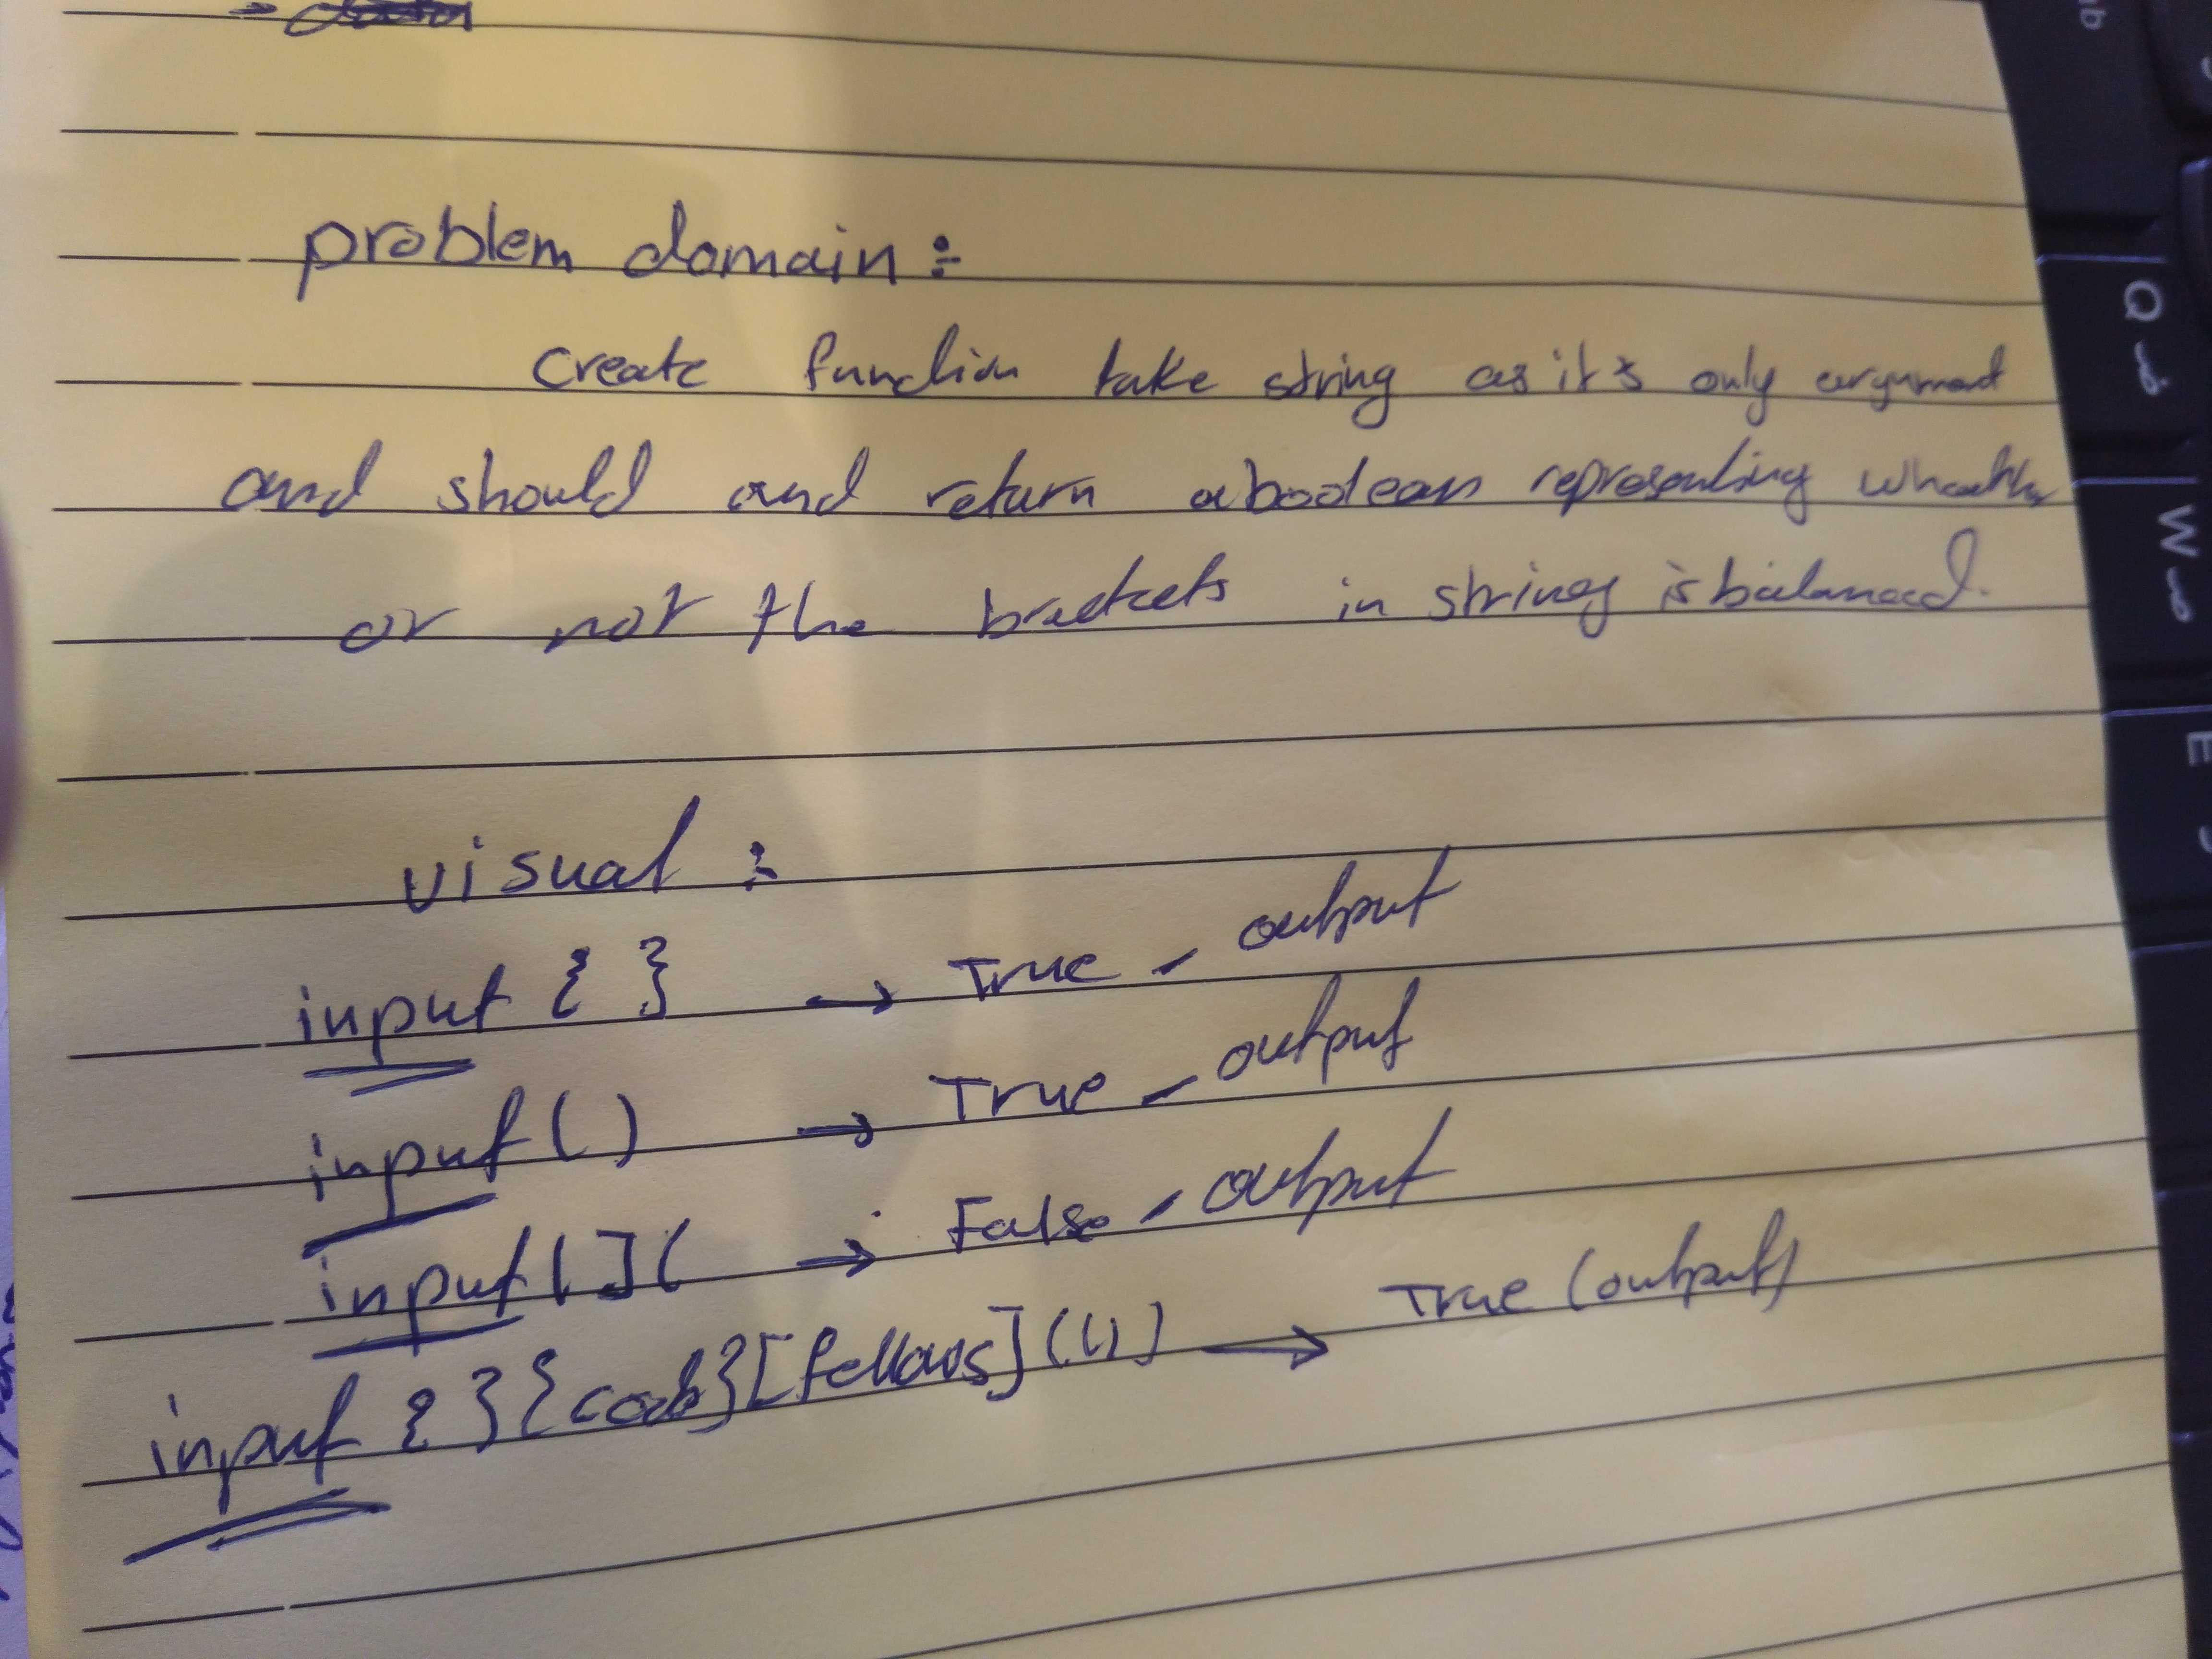 problem domain :
create function take string as it's only argument
and should and return a boolean representing wheather
or not the brackets in string is balanced.
visual :
input { } → True - output
input ( ) → True - output
input [ ] ( → False - output
input { } { code } [fellows] (()) → True (output)
Q
W
E